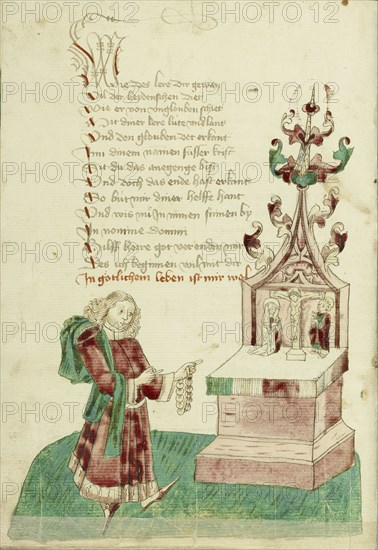 PHOTO12 PHOTO12 PHOTO12
Wie des lere dir
Vil der heydenschen diet
Wie er von unglouben schiet
Mit diner lere lute und lant
Und den glouben det erkant
Inn dinem namen süsser krist
Sit du das anegenge bist
Und doch das ende hast erkant
So but mir diner helffe hant
Und wis mir in minen sinnen by
In nomine domini
Hilff herre got vor enden mir
Des ich beginnen wil mit dir
In gotlichem leben ist mir wol